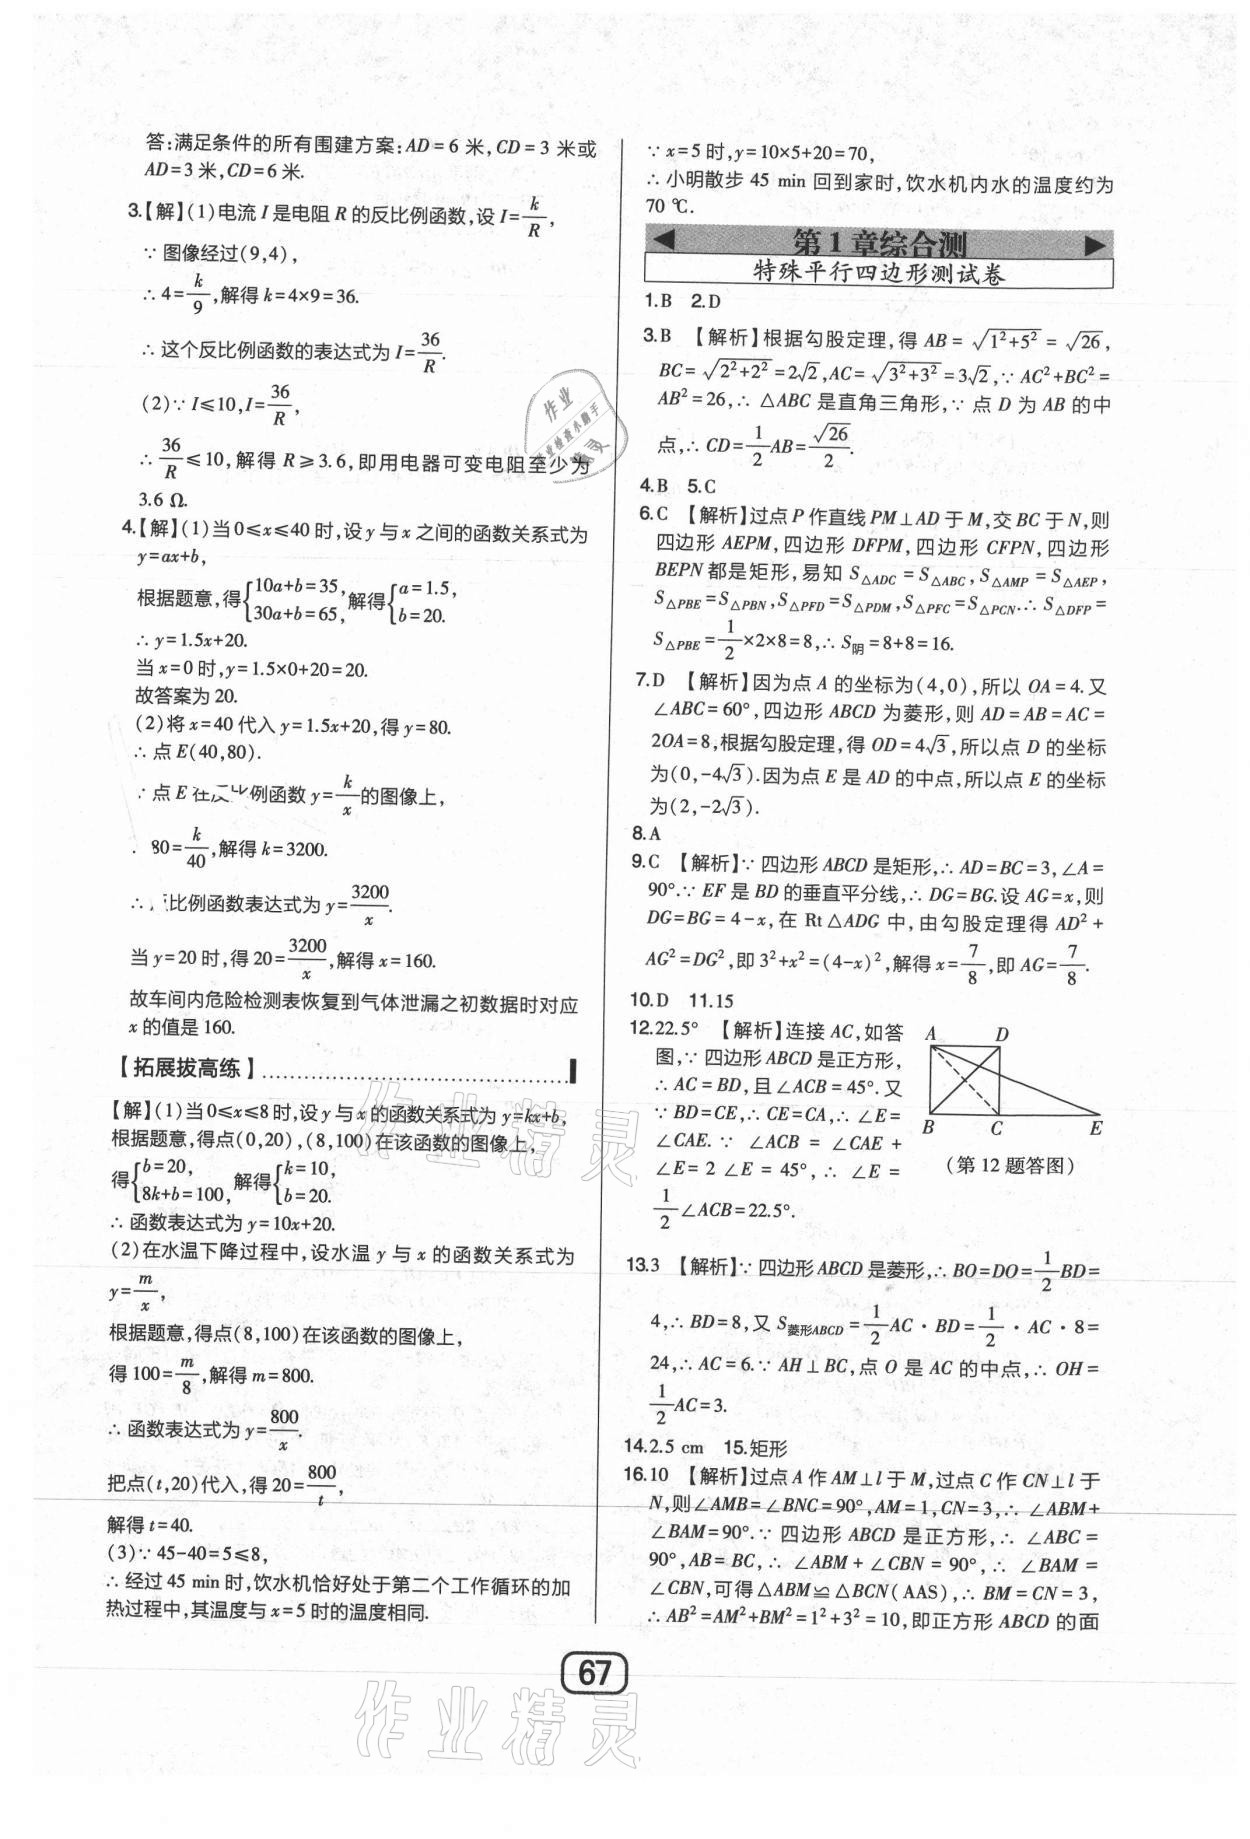 答:满足条件的所有围建方案:AD=6 米,CD=3 米或
AD=3 米,CD=6 米.
3.【解】(1)电流 I 是电阻 R 的反比例函数,设 I=k/R,
∵ 图像经过(9,4),
∴ 4=k/9,解得 k=4×9=36.
∴ 这个反比例函数的表达式为 I=36/R.
(2)∵ I≤10,I=36/R,
∴ 36/R≤10,解得 R≥3.6,即用电器可变电阻至少为
3.6 Ω.
4.【解】(1)当 0≤x≤40 时,设 y 与 x 之间的函数关系式为
y=ax+b,
根据题意,得{10a+b=35, 30a+b=65,解得{a=1.5, b=20.
∴ y=1.5x+20.
当 x=0 时,y=1.5×0+20=20.
故答案为 20.
(2)将 x=40 代入 y=1.5x+20,得 y=80.
∴ 点 E(40,80).
∵ 点 E 在反比例函数 y=k/x的图像上,
80=k/40,解得 k=3200.
∴ 反比例函数表达式为 y=3200/x.
当 y=20 时,得 20=3200/x,解得 x=160.
故车间内危险检测表恢复到气体泄漏之初数据时对应
x 的值是 160.
【拓展拔高练】
【解】(1)当 0≤x≤8 时,设 y 与 x 的函数关系式为 y=kx+b,
根据题意,得点(0,20),(8,100)在该函数的图像上,
得{b=20, 8k+b=100,解得{k=10, b=20.
∴ 函数表达式为 y=10x+20.
(2)在水温下降过程中,设水温 y 与 x 的函数关系式为
y=m/x,
根据题意,得点(8,100)在该函数的图像上,
得 100=m/8,解得 m=800.
∴ 函数表达式为 y=800/x.
把点(t,20)代入,得 20=800/t,
解得 t=40.
(3)∵ 45-40=5≤8,
∴ 经过 45 min 时,饮水机恰好处于第二个工作循环的加
热过程中,其温度与 x=5 时的温度相同.
∵ x=5 时,y=10×5+20=70,
∴ 小明散步 45 min 回到家时,饮水机内水的温度约为
70 ℃.
第 1 章综合测
特殊平行四边形测试卷
1.B 2.D
3.B 【解析】根据勾股定理,得 AB=√(1²+5²)=√26,
BC=√(2²+2²)=2√2,AC=√(3²+3²)=3√2,∵ AC²+BC²=
AB²=26,∴ △ABC 是直角三角形,∵ 点 D 为 AB 的中
点,∴ CD=1/2AB=√26/2.
4.B 5.C
6.C 【解析】过点 P 作直线 PM⊥AD 于 M,交 BC 于 N,则
四边形 AEPM,四边形 DFPM,四边形 CFPN,四边形
BEPN 都是矩形,易知 S△ADC=S△ABC,S△AMP=S△AEP,
S△PBE=S△PBN,S△PFD=S△PDM,S△PFC=S△PCN.∴ S△DFP=
S△PBE=1/2×2×8=8,∴ S阴=8+8=16.
7.D 【解析】因为点 A 的坐标为(4,0),所以 OA=4.又
∠ABC=60°,四边形 ABCD 为菱形,则 AD=AB=AC=
2OA=8,根据勾股定理,得 OD=4√3,所以点 D 的坐标
为(0,-4√3).因为点 E 是 AD 的中点,所以点 E 的坐标
为(2,-2√3).
8.A
9.C 【解析】∵ 四边形 ABCD 是矩形,∴ AD=BC=3,∠A=
90°.∵ EF 是 BD 的垂直平分线,∴ DG=BG.设 AG=x,则
DG=BG=4-x,在 Rt△ADG 中,由勾股定理得 AD²+
AG²=DG²,即 3²+x²=(4-x)²,解得 x=7/8,即 AG=7/8.
10.D 11.15
12.22.5° 【解析】连接 AC,如答
图,∵ 四边形 ABCD 是正方形,
∴ AC=BD,且∠ACB=45°.又
∵ BD=CE,∴ CE=CA,∴ ∠E=
∠CAE.∵ ∠ACB=∠CAE+
∠E=2∠E=45°,∴ ∠E=
1/2∠ACB=22.5°.
A D
B C E
(第 12 题答图)
13.3 【解析】∵ 四边形 ABCD 是菱形,∴ BO=DO=1/2BD=
4,∴ BD=8,又 S菱形ABCD=1/2AC·BD=1/2·AC·8=
24,∴ AC=6.∵ AH⊥BC,点 O 是 AC 的中点,∴ OH=
1/2AC=3.
14.2.5 cm 15.矩形
16.10 【解析】过点 A 作 AM⊥l 于 M,过点 C 作 CN⊥l 于
N,则∠AMB=∠BNC=90°,AM=1,CN=3,∴ ∠ABM+
∠BAM=90°.∵ 四边形 ABCD 是正方形,∴ ∠ABC=
90°,AB=BC,∴ ∠ABM+∠CBN=90°,∴ ∠BAM=
∠CBN,可得△ABM≌△BCN(AAS),∴ BM=CN=3,
∴ AB²=AM²+BM²=1²+3²=10,即正方形 ABCD 的面
67
作业精灵
作业精灵